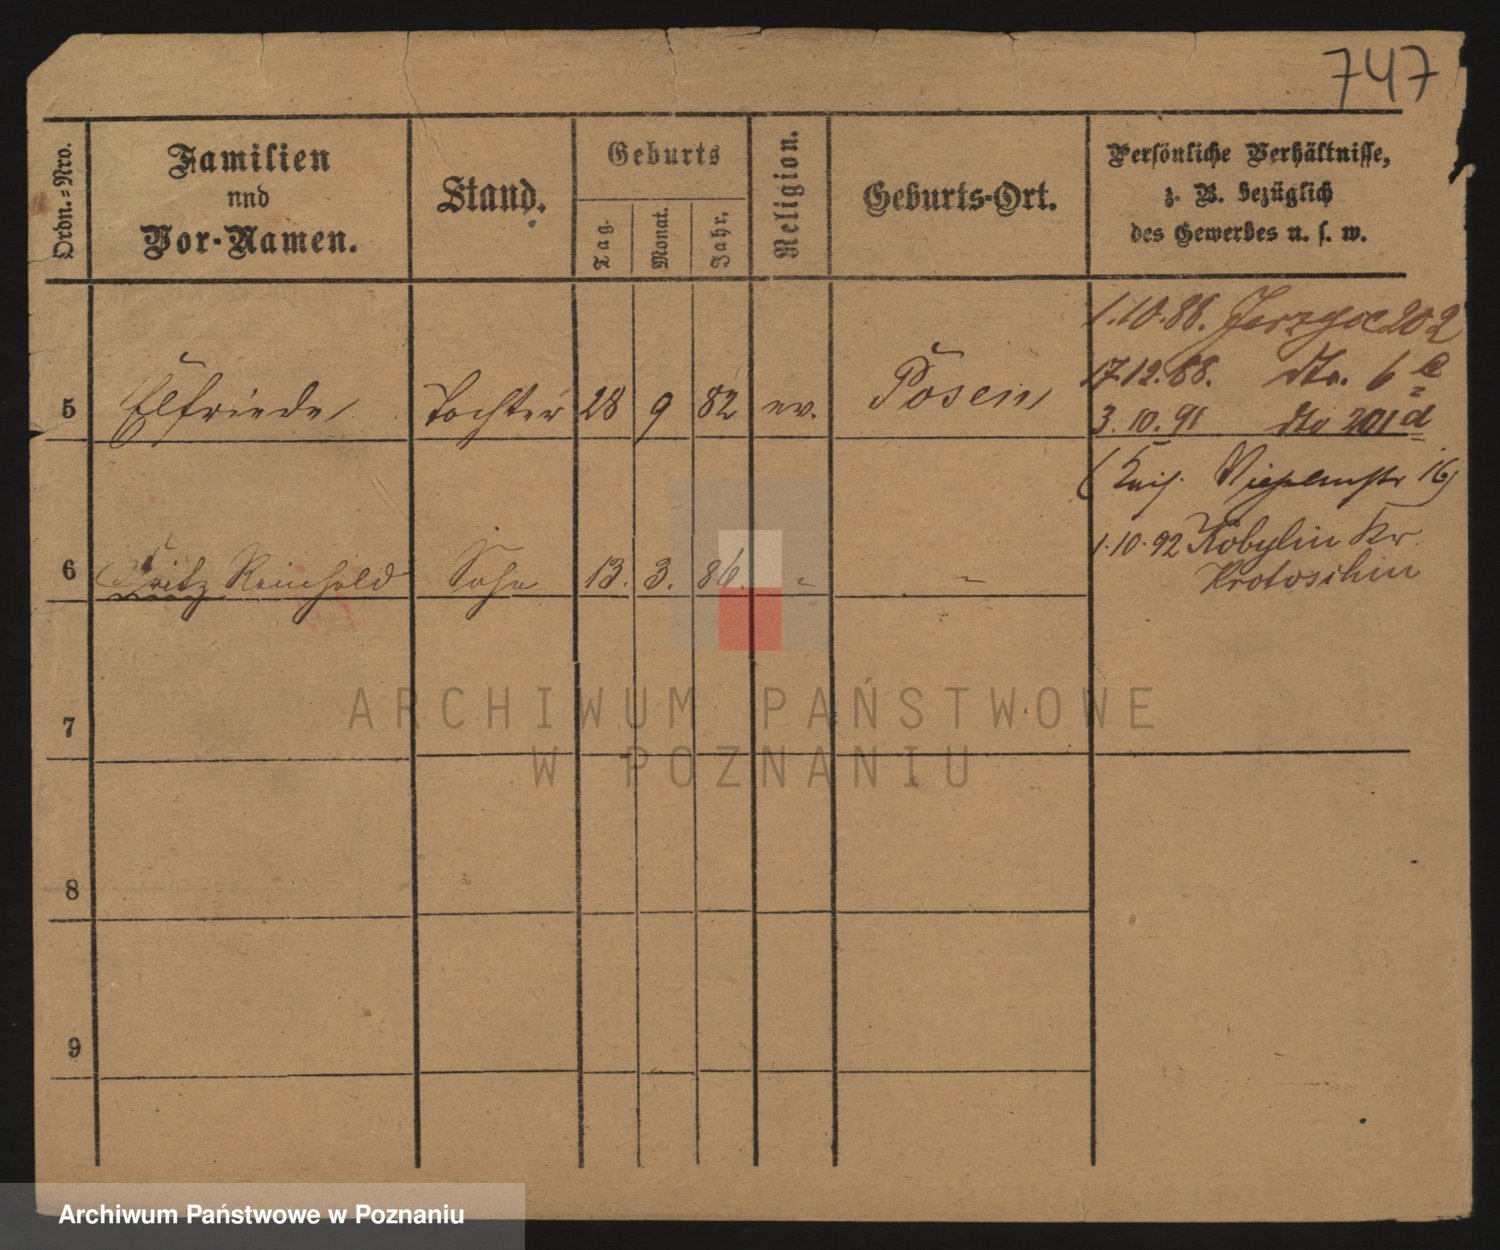 747
Ordn.=Nro.
Familien
nnd
Vor-Namen.
Stand.
Geburts
Tag.
Monat.
Jahr.
Religion.
Geburts-Ort.
Persönliche Verhältnisse,
z. B. bezüglich
des Gewerbes u. s. w.
1.10.88. Jerzyce 202
17.12.88. dto. 6
5 Elfriede Tochter 28 9 82 ev. Posen
3.10.91 dto 201 d
16)
1.10.92 Kobylin Kr.
Krotoschin
6 Fritz Reinhold Sohn 13. 3. 86. " "
7
8
9
ARCHIWUM PAŃSTWOWE
W POZNANIU
Archiwum Państwowe w Poznaniu